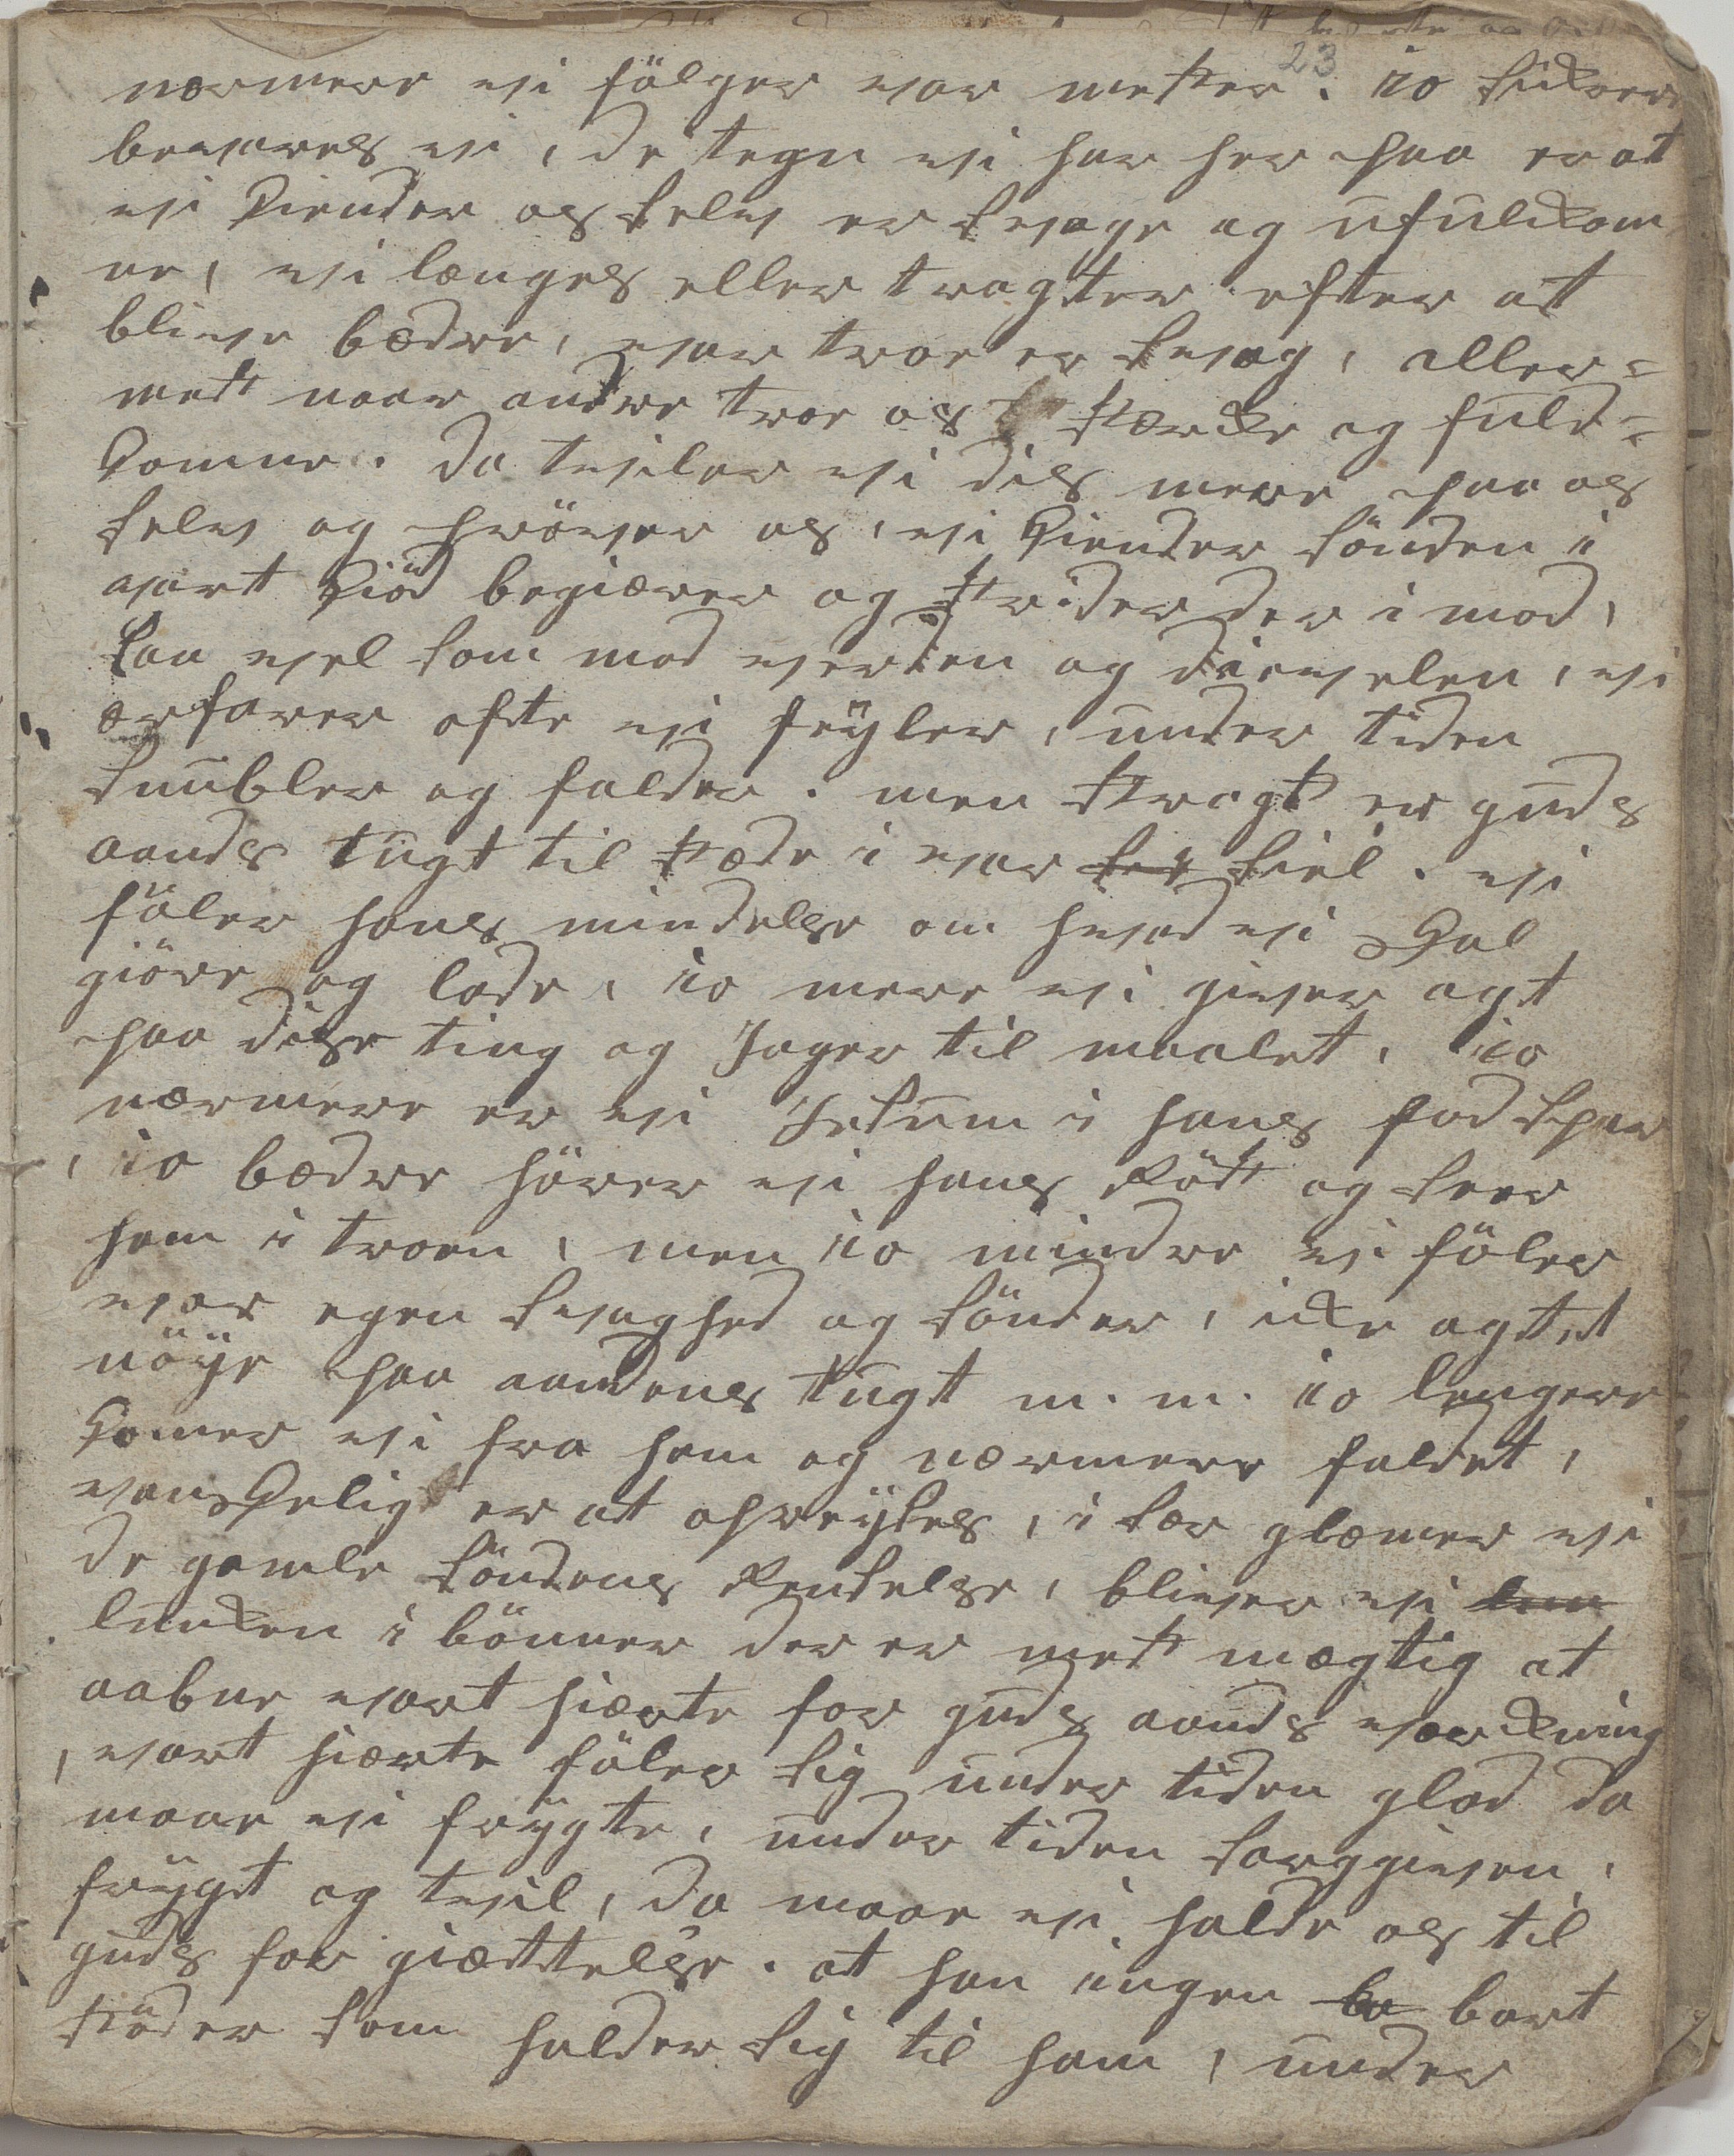 23
nærmere vi fölger vor mester. io sikrere
bevares vi, de tegn vi har her paa er at
vi kiender os selv er svage og ufulkom
ne, vi længes eller tragter efter at
blive bædre, vor troe er svag, aller=
mest naar andre troe os stærke og fuld=
komne. da tviler vi dis mere paa os
selv og pröver os, vi kiender sönden i
vort kiöd begiærer og strider der i mod,
saa vel som mod verden og dievelen, vi
ærfarer ofte vi feÿler, under tiden
snubler og falder. men stragt er guds
aands tugt til stæde i vor siel. vi
föler hans mindelse om hvad vi skal
giöre og lade, io mere vi giver agt
paa disse ting og Jager til maalet, io
nærmere er vi Jesum i hans fod spor
, io bædre hörer vi hans Röst og seer
ham i troen, men io mindre vi föler
vor egen svaghed og sönder, ike agtet
nöÿe paa aandens tugt m. m. io lengere
komer vi fra ham og nærmere faldet,
vanskelig er at opreÿses, i sær glæmer vi
de gamle söndens Rendselse, bliver vi lun
lunken i bönner der er mest mægtig at
aabne vort hiærte for guds aands værkning
, vort hiærte föler sig under tiden glad da
maae vi frÿgte, under tiden sorggiven,
frÿgt og tvil, da maae vi holde os til
guds for giættelse. at han ingen bo bort
stöder som holder sig til ham, under